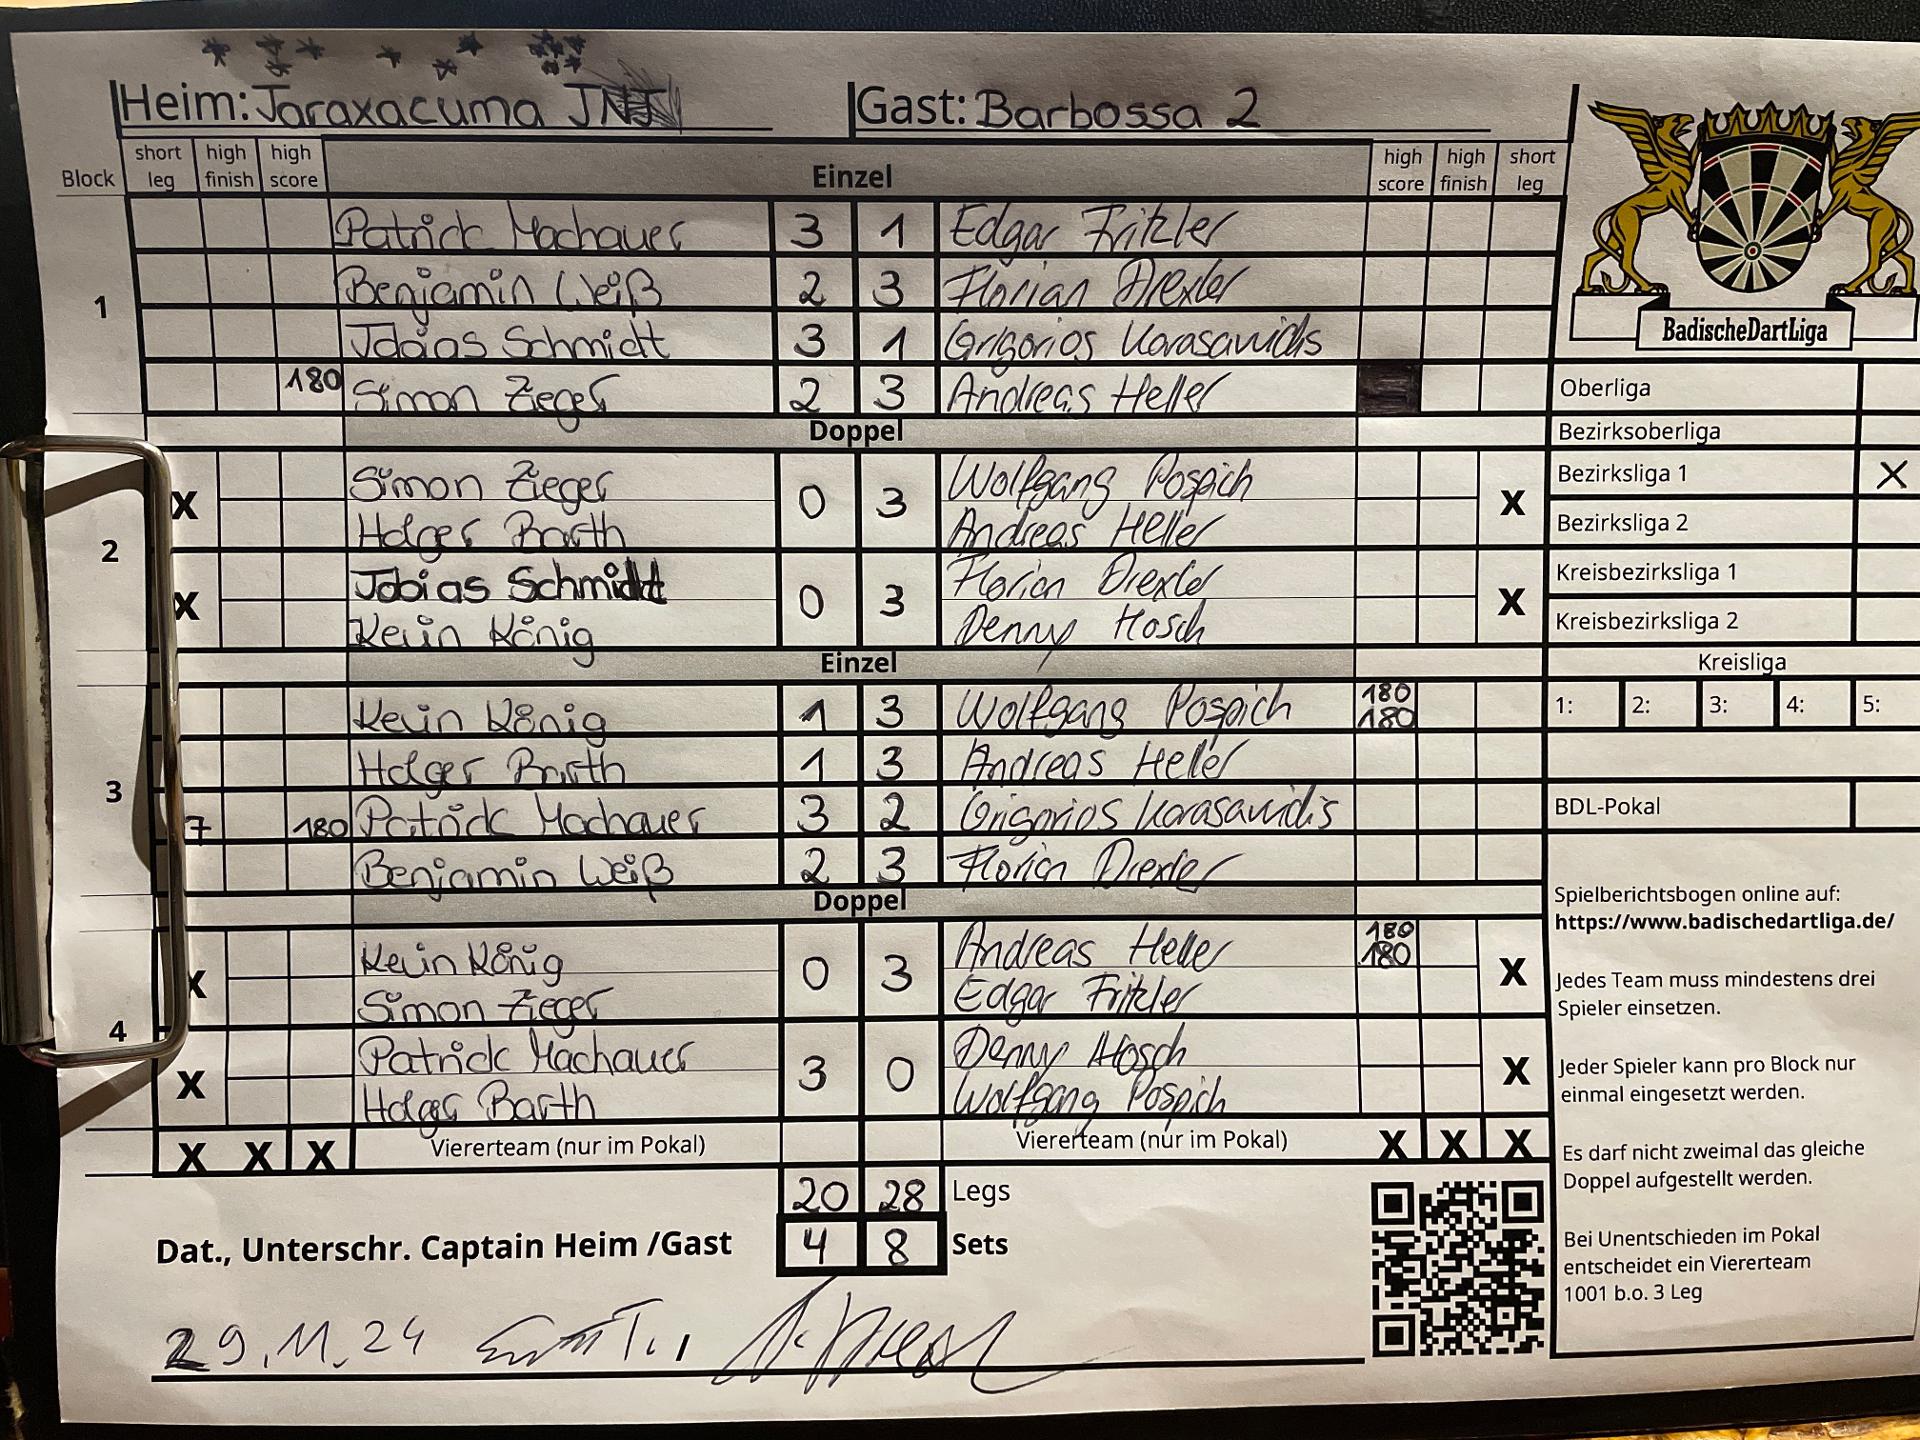 Heim: Taraxacuma Gast: Barbossa 2
Block short leg high finish high score Einzel high score high finish short leg
BadischeDartLiga
1
Patrick Machauer 3 1 Edgar Fritzler
Benjamin Weiß 2 3 Florian Drexler
Tobias Schmidt 3 1 Grigorios Karasavvidis
180 Simon Zieger 2 3 Andreas Heller
Doppel
2
X Simon Zieger 0 3 Wolfgang Pospich X
Holger Barth Andreas Heller
X Tobias Schmidt 0 3 Florian Drexler X
Kevin König Denny Hosch
Einzel
3
Kevin König 1 3 Wolfgang Pospich 180 180
Holger Barth 1 3 Andreas Heller
7 180 Patrick Machauer 3 2 Grigorios Karasavvidis
Benjamin Weiß 2 3 Florian Drexler
Doppel
4
X Kevin König 0 3 Andreas Heller 180 180 X
Simon Zieger Edgar Fritzler
X Patrick Machauer 3 0 Denny Hosch X
Holger Barth Wolfgang Pospich
X X X Viererteam (nur im Pokal) Viererteam (nur im Pokal) X X X
20 28 Legs
Dat., Unterschr. Captain Heim /Gast 4 8 Sets
29.11.24
Oberliga
Bezirksoberliga
Bezirksliga 1 X
Bezirksliga 2
Kreisbezirksliga 1
Kreisbezirksliga 2
Kreisliga
1: 2: 3: 4: 5:
BDL-Pokal
Spielberichtsbogen online auf:
https://www.badischedartliga.de/
Jedes Team muss mindestens drei
Spieler einsetzen.
Jeder Spieler kann pro Block nur
einmal eingesetzt werden.
Es darf nicht zweimal das gleiche
Doppel aufgestellt werden.
Bei Unentschieden im Pokal
entscheidet ein Viererteam
1001 b.o. 3 Leg